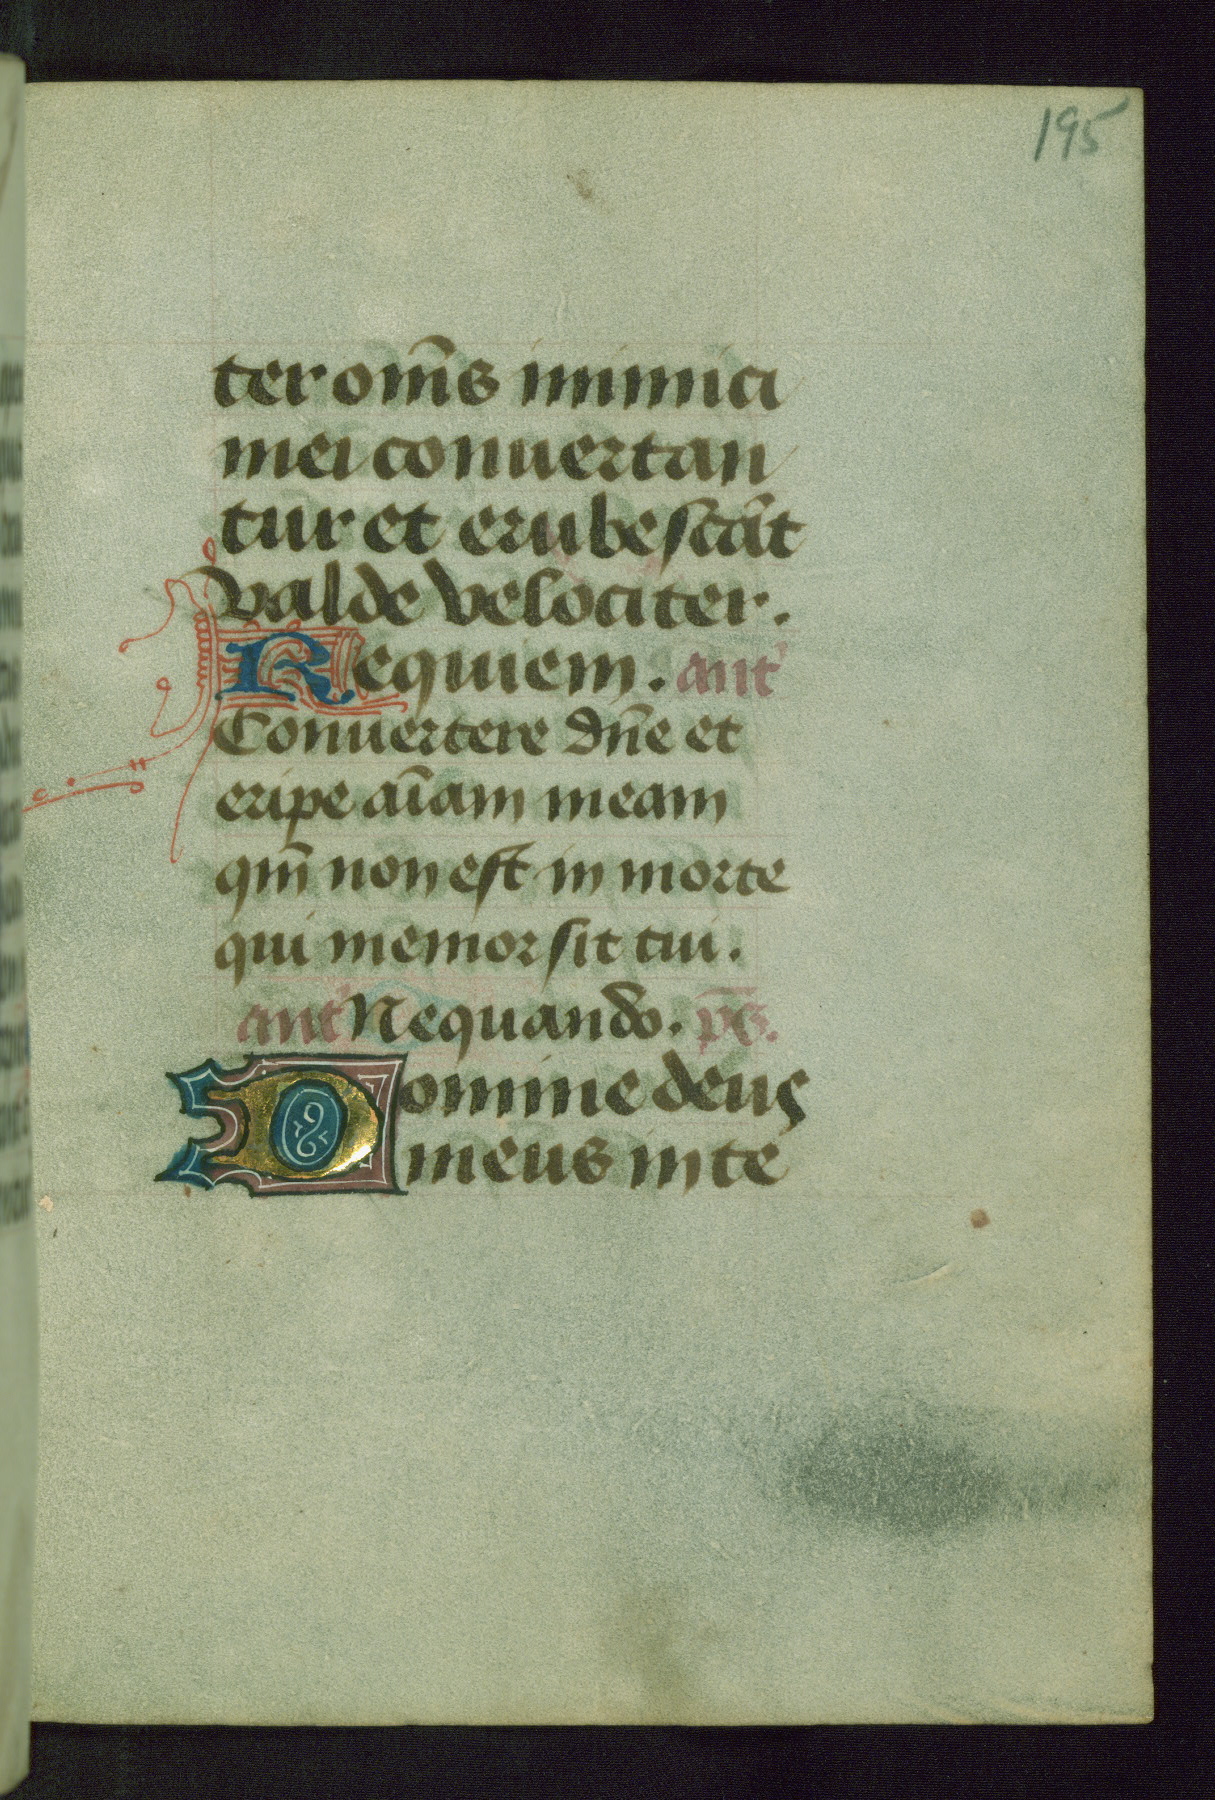 195
ter om̄s inimici
mei conuertan
tur et erubescāt
valde velociter.
Requiem. ant'
Conuertere dn̄e et
eripe aīam meam
qm̄ non est in morte
qui memor sit tui.
ant' Nequando. ps̄.
Domine deus
meus in te